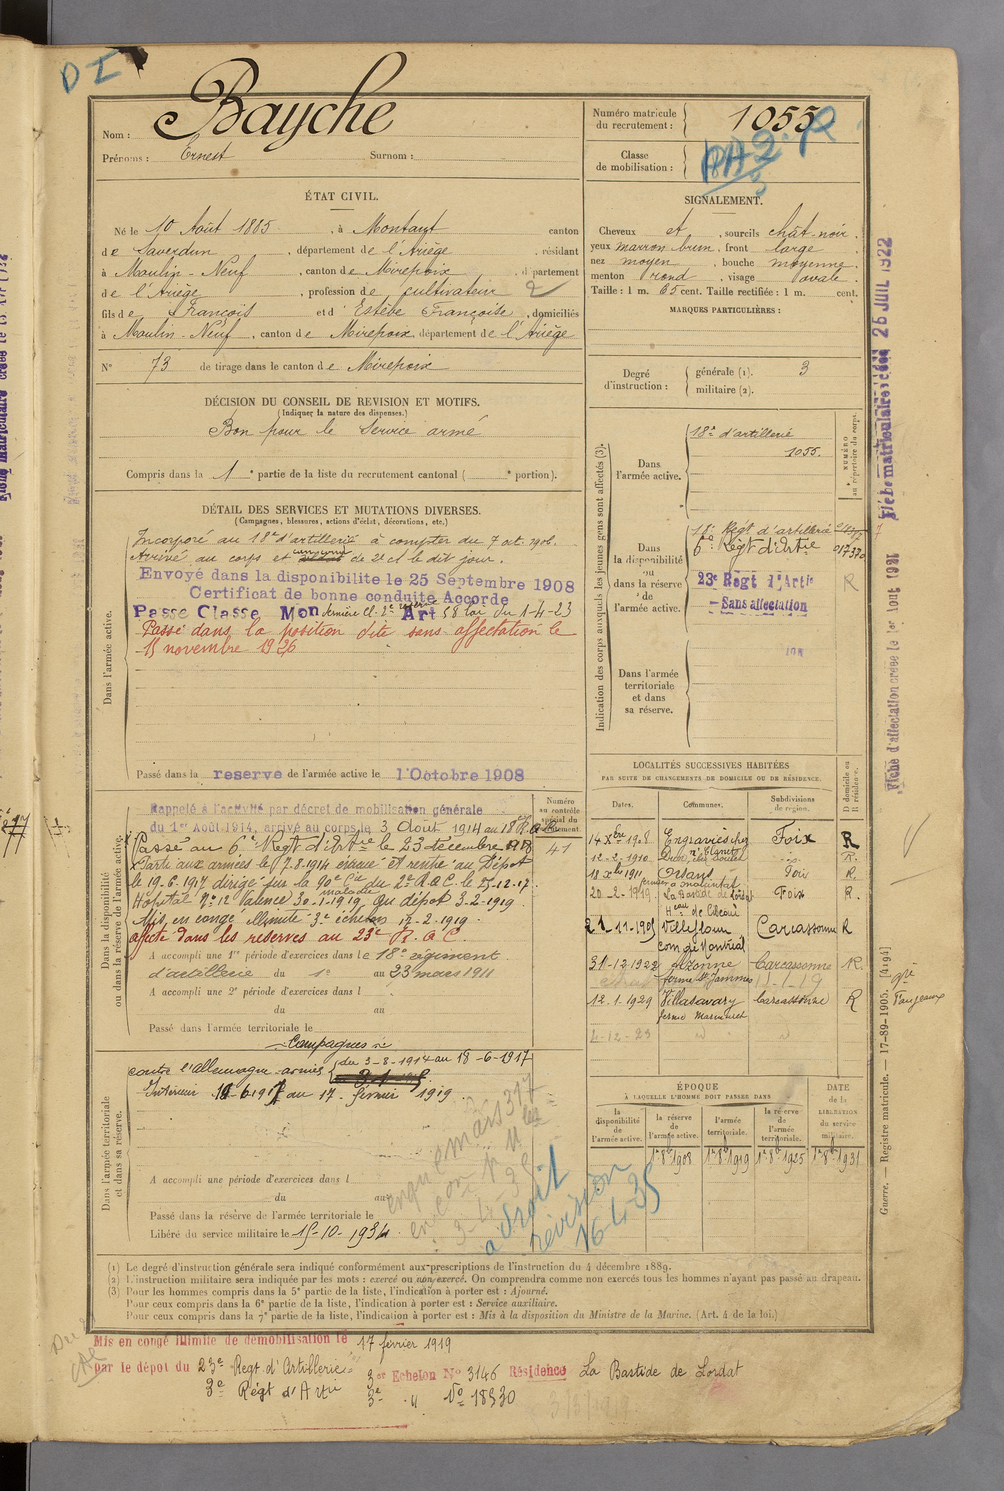 D I
Nom : Bayche
Prénoms : Ernest Surnom :
Numéro matricule du recrutement : 1055
Classe de mobilisation :
ÉTAT CIVIL.
Né le 10 Août 1885, à Montaut canton
de Saverdun, département de l'Ariège, résidant
à Moulin-Neuf, canton de Mirepoix, département
de l'Ariège, profession de cultivateur 2
fils de François et d'Estèbe Françoise, domiciliés
à Moulin-Neuf, canton de Mirepoix département de l'Ariège
N° 73 de tirage dans le canton de Mirepoix
SIGNALEMENT.
Cheveux et, sourcils chât-noir.
yeux marron brun, front large
nez moyen, bouche moyenne.
menton rond, visage ovale.
Taille : 1 m. 65 cent. Taille rectifiée : 1 m. cent.
MARQUES PARTICULIÈRES :
Degré d'instruction : générale (1). 3
militaire (2).
DÉCISION DU CONSEIL DE REVISION ET MOTIFS.
(Indiquer la nature des dispenses.)
Bon pour le Service armé
Compris dans la 1e partie de la liste du recrutement cantonal ( e portion).
DÉTAIL DES SERVICES ET MUTATIONS DIVERSES.
(Campagnes, blessures, actions d'éclat, décorations, etc.)
Dans l'armée active.
Incorporé au 18e d'artillerie à compter du 7 oct. 1906.
Arrivé au corps et de 2e cl le dit jour.
Envoyé dans la disponibilité le 25 Septembre 1908
Certificat de bonne conduite Accordé
Passé Classe Mon Dernière Cl. 2e réserve Art 58 loi du 1-4-23
Passé dans la position dite sans affectation le
15 novembre 1926
Passé dans la reserve de l'armée active le 1 Octobre 1908
Indication des corps auxquels les jeunes gens sont affectés (3).
NUMÉRO au répertoire du corps.
Dans l'armée active.
18e d'artillerie
1055.
Dans la disponibilité ou dans la réserve de l'armée active.
18e Regt d'artillerie
6e Régt d'Artie
23e Regt d'Artie
- Sans affectation
R
Dans l'armée territoriale et dans sa réserve.
LOCALITÉS SUCCESSIVES HABITÉES
PAR SUITE DE CHANGEMENTS DE DOMICILE OU DE RÉSIDENCE.
D domicile ou R résidence.
Dates. Communes. Subdivisions de région.
14 Xbre 1908 Engraviès chez Foix R
12-2-1910 R.
18 Xbre 1911 Foix R.
20-2-1919 La Bastide de Lordat Foix R
21-11-1905 Villefloure Carcassonne R
com de Montréal
31-12-1922 Alzonne Carcassonne R.
ferme St Jammes
12.1.1929 Villasavary Carcassonne R
4-12-23
Dans la disponibilité ou dans la réserve de l'armée active.
Numéro au contrôle spécial du recrutement.
41
Rappelé à l'activité par décret de mobilisation générale
du 1er Août 1914, arrivé au corps le 3 Août 1914 au 18e R.A.
Passé au 6e Regt d'Artie le 23 décembre
Parti aux armées le 7.8.1914 évacué et rentré au Dépôt
le 19.6.1917 dirigé sur la 90e Cie du 2e R.A.C. le 25.12.17.
malade
Hôpital n° 12 Valence 30-1-1919 au dépôt 3-2-1919.
Mis en congé illimité 3e échelon 17-2-1919.
affecté dans les reserves au 23e R.A.C.
A accompli une 1re période d'exercices dans le 18e régiment
d'artillerie du 1er au 23 mars 1911
A accompli une 2e période d'exercices dans l
du au
Passé dans l'armée territoriale le
Campagnes
contre l'allemagne armées du 3-8-1914 au 18-6-1917
Intérieur au 17 février 1919.
Dans l'armée territoriale et dans sa réserve.
A accompli une période d'exercices dans l
du au
Passé dans la réserve de l'armée territoriale le
Libéré du service militaire le 15-10-1934.
à droit
révision
16-4-35
ÉPOQUE
À LAQUELLE L'HOMME DOIT PASSER DANS
DATE de la LIBÉRATION du service militaire.
la disponibilité de l'armée active. la réserve de l'armée active. l'armée territoriale. la réserve de l'armée territoriale.
1er 8bre 1908 1er 8bre 1919 1er 8bre 1925 1er 8bre 1931
(1) Le degré d'instruction générale sera indiqué conformément aux prescriptions de l'instruction du 4 décembre 1889.
(2) L'instruction militaire sera indiquée par les mots : exercé ou non exercé. On comprendra comme non exercés tous les hommes n'ayant pas passé au drapeau.
(3) Pour les hommes compris dans la 5e partie de la liste, l'indication à porter est : Ajourné.
Pour ceux compris dans la 6e partie de la liste, l'indication à porter est : Service auxiliaire.
Pour ceux compris dans la 7e partie de la liste, l'indication à porter est : Mis à la disposition du Ministre de la Marine. (Art. 4 de la loi.)
Mis en congé illimité de démobilisation le 17 février 1919
par le dépôt du 23e Regt d'Artillerie 3e Echelon N° 3146 Résidence La Bastide de Lordat
3e Régt d'Artie 3e " N° 18530
Fiche matriculaire créée 26 JUIL 1922
Fiche d'affectation créée le 1er Août 1921
Guerre. — Registre matricule. — 17-89-1905. [4194]
Fanjeaux